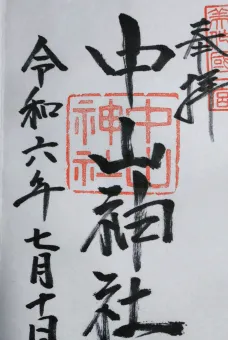 奉拝
中山神社
中山
神社
令和六年七月十日